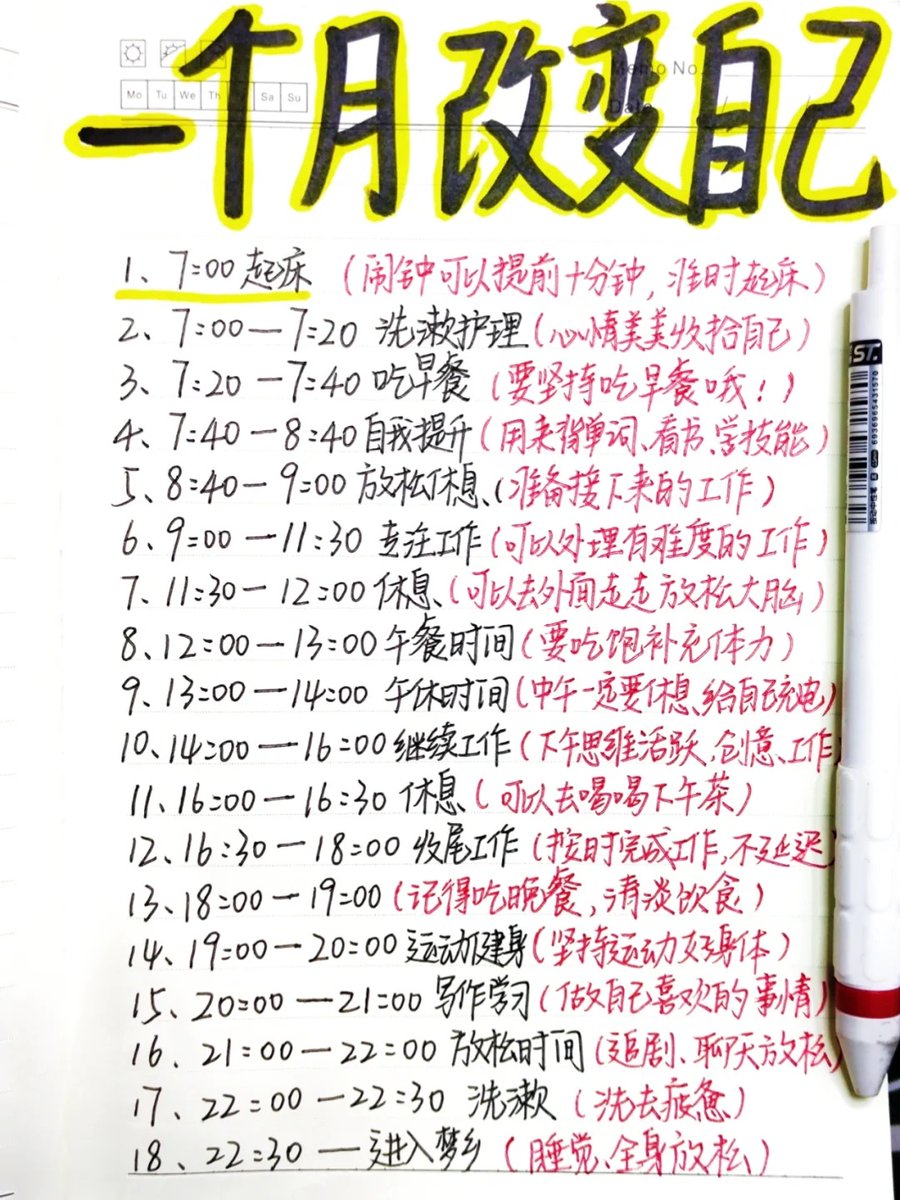 Memo No.
Mo Tu We Th Sa Su
Date
一个月改变自己
1、7:00 起床 (闹钟可以提前十分钟,准时起床)
2、7:00—7:20 洗漱护理(心情美美收拾自己)
3、7:20—7:40 吃早餐 (要坚持吃早餐哦!)
4、7:40—8:40 自我提升(用来背单词、看书、学技能)
5、8:40—9:00 放松休息、(准备接下来的工作)
6、9:00—11:30 专注工作(可以处理有难度的工作)
7、11:30—12:00 休息、(可以去外面走走放松大脑)
8、12:00—13:00 午餐时间(要吃饱补充体力)
9、13:00—14:00 午休时间(中午一定要休息、给自己充电)
10、14:00—16:00 继续工作(下午思维活跃、创意、工作)
11、16:00—16:30 休息 (可以去喝喝下午茶)
12、16:30—18:00 收尾工作 (按时完成工作,不延迟)
13、18:00—19:00 (记得吃晚餐,清淡饮食)
14、19:00—20:00 运动健身(坚持运动好身体)
15、20:00—21:00 写作学习(做自己喜欢的事情)
16、21:00—22:00 放松时间(追剧、聊天放松)
17、22:00—22:30 洗漱 (洗去疲惫)
18、22:30 —进入梦乡 (睡觉、全身放松)
ST.
6936965431570